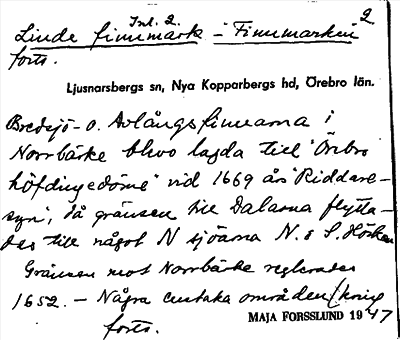 Inl. 2.
2
Linde finnmark - "Finnmarken"
forts.
Ljusnarsbergs sn, Nya Kopparbergs hd, Örebro län.
Bredsjö- o. Avlångsfinnarna i
Norrbärke blevo lagda till "Örebro
höfdingedöme" vid 1669 års "Riddare-
syn", då gränsen till Dalarna flytta-
des till något N sjöarna N. & S. Hörken
Gränsen mot Norrbärke reglerades
1652. - Några enstaka områden (kring
forts.
MAJA FORSSLUND 1947